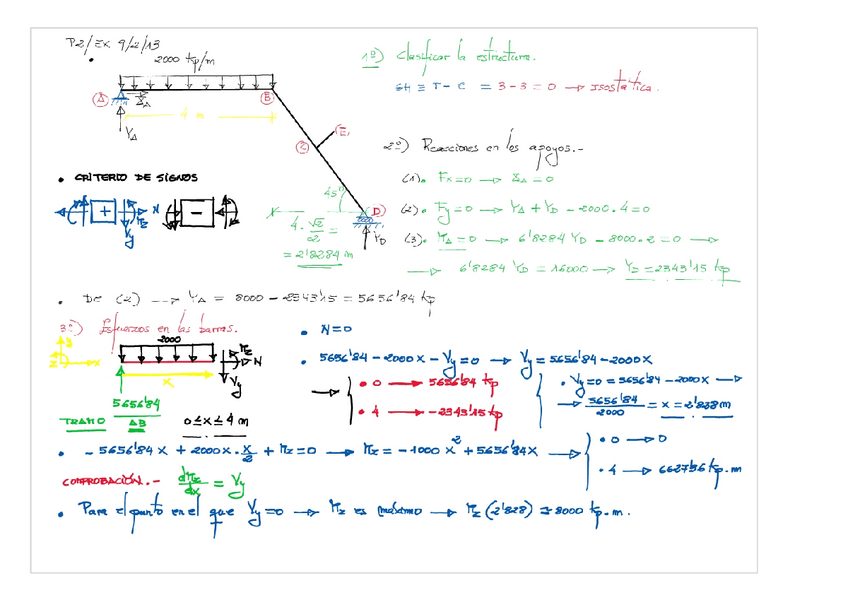 P2/Ex 9/2/13
2000 kp/m
A
B
XA
YA
4 m
C
E
D
45°
YD
4·√2/2 =
= 2'8284 m
1º) Clasificar la estructura.
GH ≡ T - C = 3 - 3 = 0 → Isostática.
2º) Reacciones en los apoyos.-
(1)• Fx=0 → XA = 0
(2)• Fy=0 → YA + YD - 2000·4=0
(3)• MA=0 → 6'8284 YD - 8000·2 = 0 →
→ 6'8284 YD = 16000 → YD=2343'15 kp
• CRITERIO DE SIGNOS
+ N Mz Vy -
• De (2) → YA = 8000 - 2343'15 = 5656'84 kp
3º) Esfuerzos en las barras.
2000
Mz
N
Vy
x
5656'84
TRAMO AB
0 ≤ x ≤ 4 m
• N=0
• 5656'84 - 2000x - Vy=0 → Vy= 5656'84 - 2000x
→ • 0 → 5656'84 kp
• 4 → -2343'15 kp
• Vy=0 = 5656'84 - 2000x →
→ 5656'84/2000 = x = 2'828 m
• - 5656'84x + 2000x·x/2 + Mz=0 → Mz = -1000x² + 5656'84x →
• 0 → 0
• 4 → 6627'36 kp.m
COMPROBACIÓN.- dMz/dx = Vy
• Para el punto en el que Vy=0 → Mz es máximo → Mz (2'828) = 8000 kp.m.